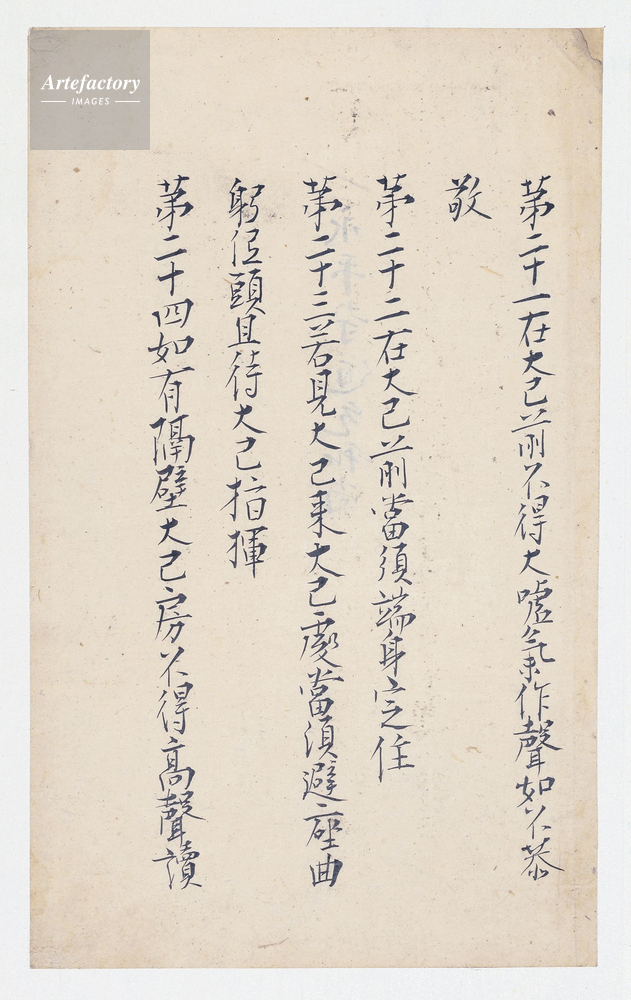 第二十一在大己前不得大噓氣作聲如不恭
敬
第二十二在大己前當須端身定住
第二十三若見大己来大己處當須避座曲
躬低頭且待大己指揮
第二十四如有隔壁大己房不得高聲讀
Artefactory
IMAGES